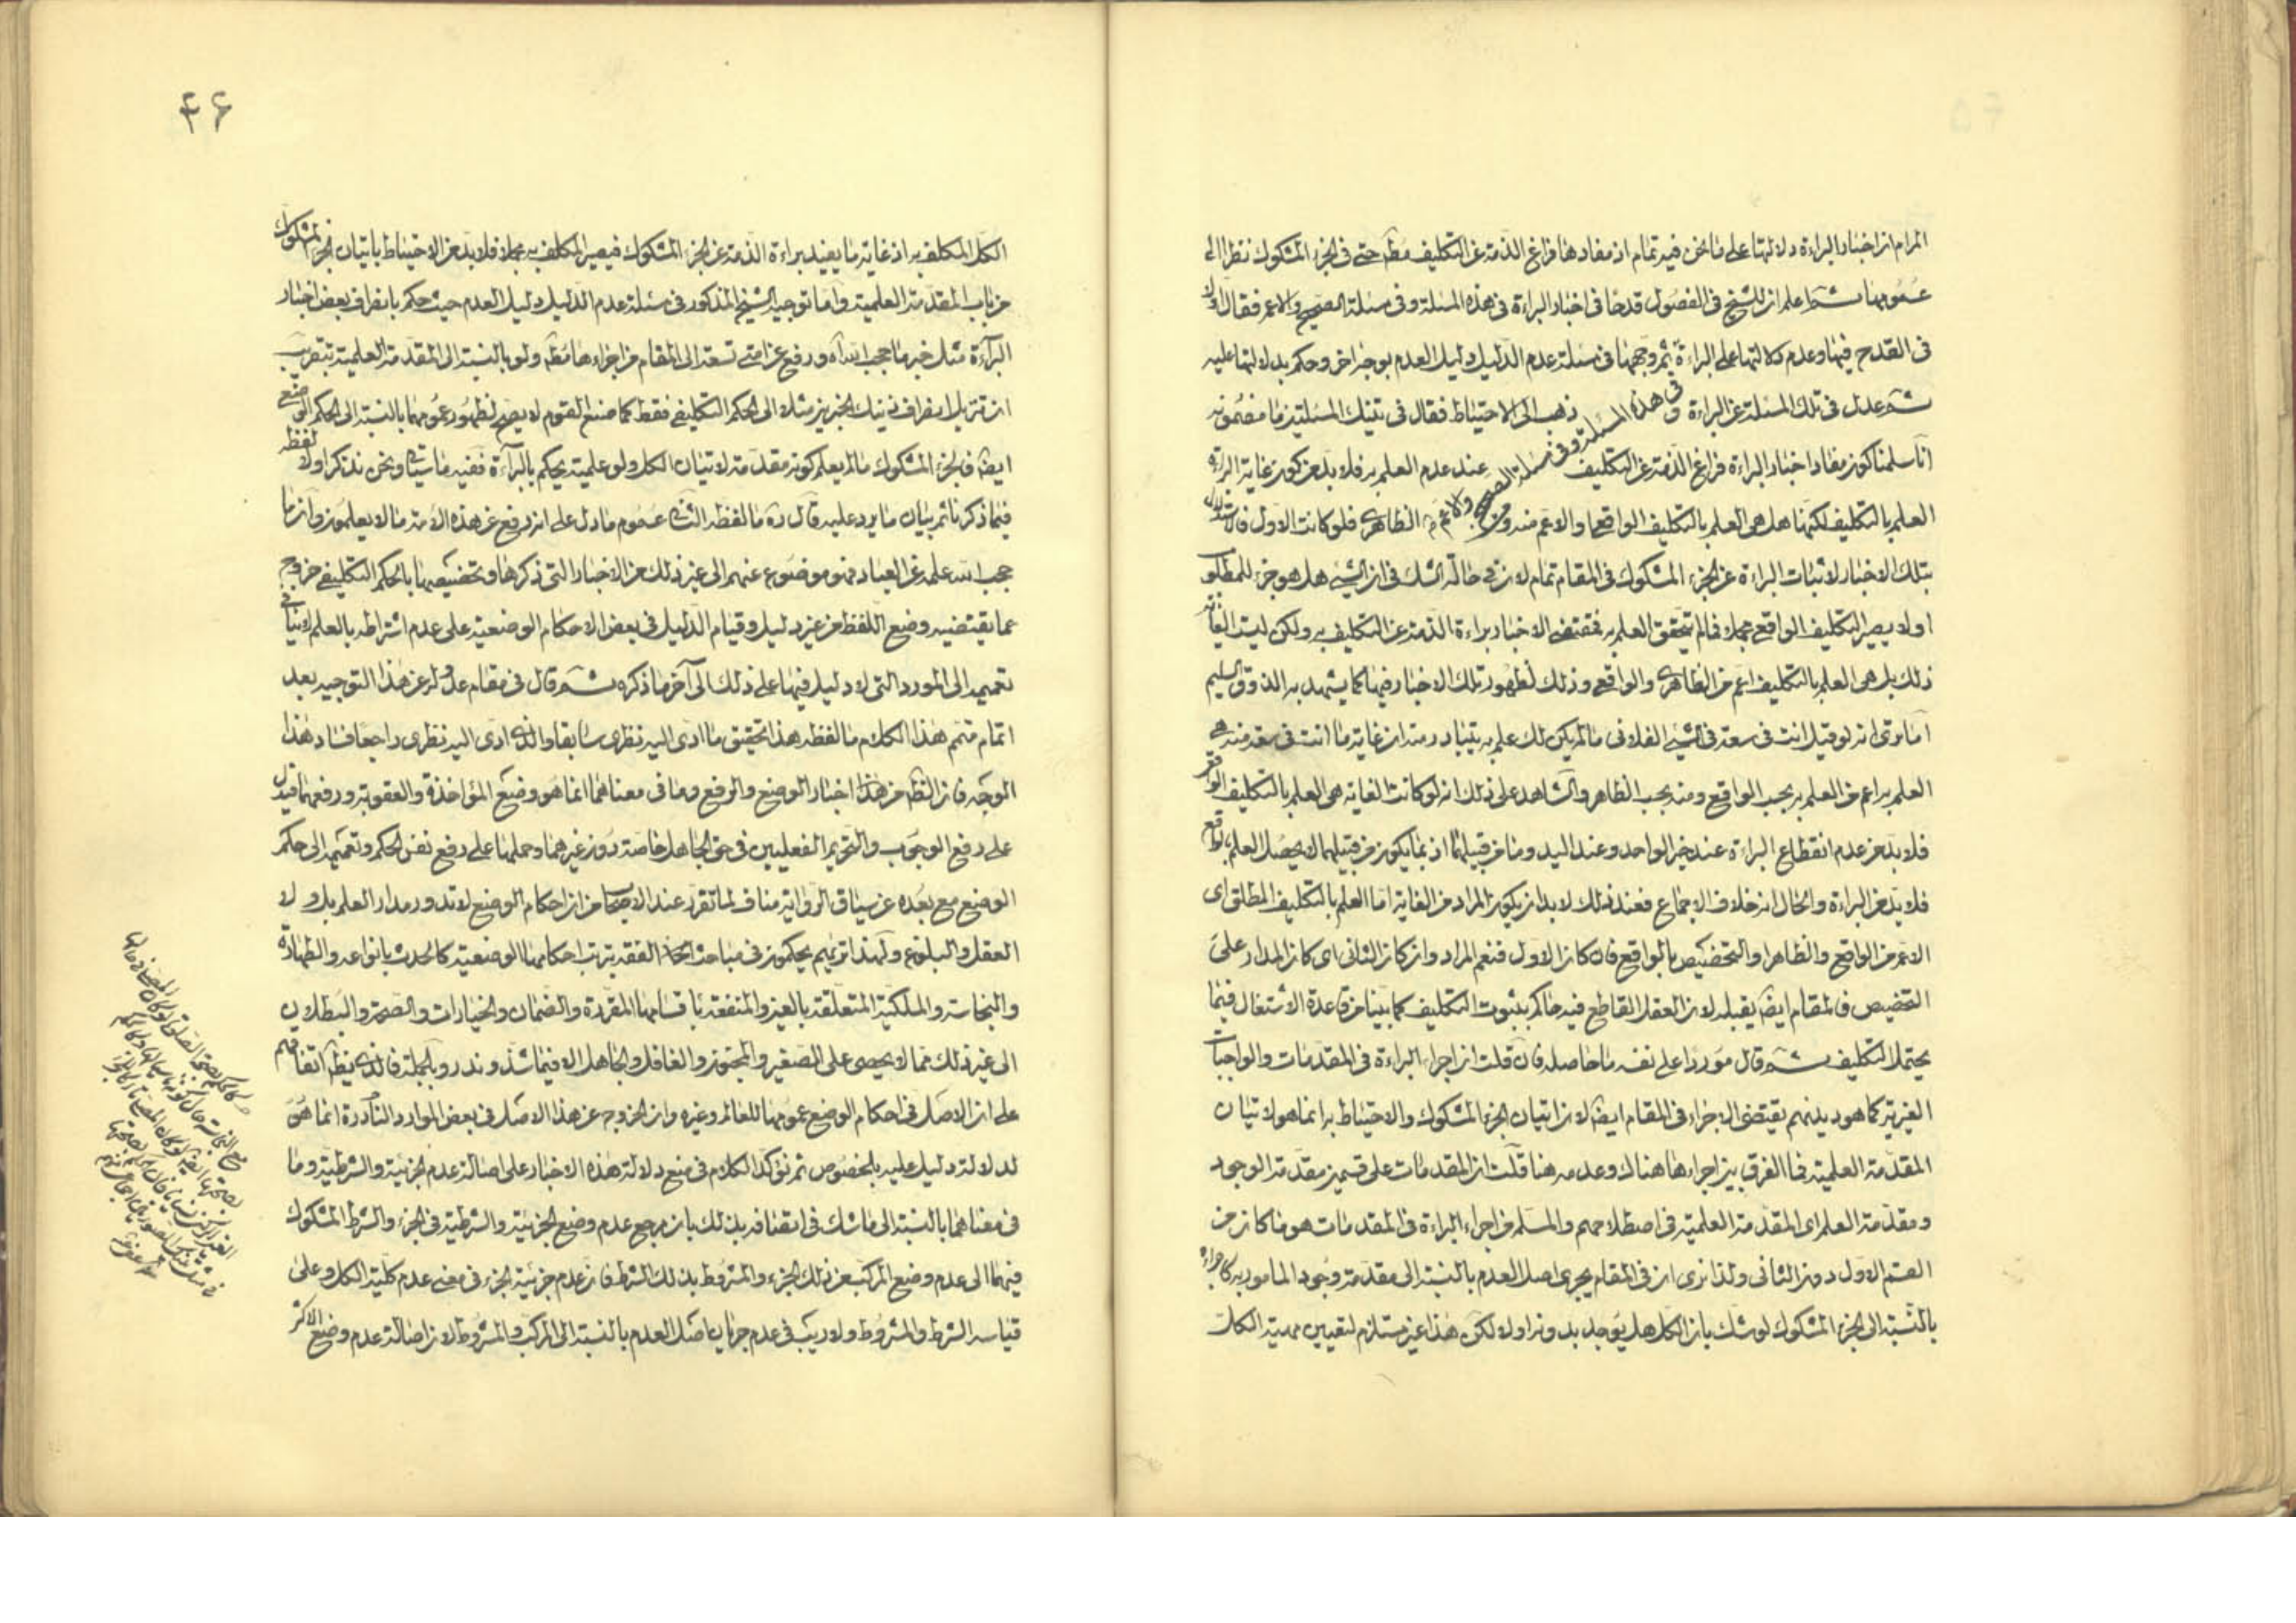 المرام ان اخبار البراءة دلالتها على ما نحن فيه تمام اذ مفادها فراغ الذمة عن التكليف مطّ حتى فى الجزء المشكوك نظرا الى
عمومها ثم اعلم ان للشيخ فى الفصول قدحا فى اخبار البراءة فى هذه المسئلة وفى مسئلة الصحيح والاعم فقال اولا
فى القدح فيها وعدم دلالتها على البراءة ثم وجهها فى مسئلة عدم الدليل دليل العدم بوجه اخر وحكم بدلالتها عليه
ثم عدل فى تلك المسئلة عن البراءة وفى هذه المسئلة وفى مسئلة الصحيح والاعم ذهب الى الاحتياط فقال فى تينك المسئلتين ما مضمونه
انا سلمنا كون مفاد اخبار البراءة فراغ الذمة عن التكليف عند عدم العلم به فلا بد من كون غاية البراءة
العلم بالتكليف لكنها هل هى العلم بالتكليف الواقعى او الاعم منه ومن الظاهرى فلو كانت الاول فالاستدلال
بتلك الاخبار لاثبات البراءة عن الجزء المشكوك فى المقام تمام لان فى حالة الشك فى ان الشىء هل هو جزء للمطلوب
او لا يصير التكليف الواقعى مجملا فما لم يتحقق العلم به فمقتضى الاخبار براءة الذمة عن التكليف به ولكن ليست الغاية
ذلك بل هى العلم بالتكليف اعم من الظاهرى والواقعى وذلك لظهور تلك الاخبار فيها كما يشهد به الذوق السليم
اما ترى انه لو قيل انت فى سعة فى الشىء الفلانى ما لم يكن لك علم به يتبادر منه ان غاية ما انت فى سعة منه هى
العلم به اعم من العلم به بحسب الواقع ومنه بحسب الظاهر والشاهد على ذلك انه لو كانت الغاية هى العلم بالتكليف الواقعى
فلا بد من عدم انقطاع البراءة عند خبر الواحد وعند اليد وما من قبيلها اذ بما يكون من قبيلهما لا يحصل العلم بالواقع
فلا بد من البراءة والحال انه خلاف الاجماع فعند ذلك لا بد ان يكون المراد من الغاية اما العلم بالتكليف المطلق اى
الاعم من الواقع والظاهر او التخصيص بالواقع فان كان الاول فنعم المراد وان كان الثانى اى كان المدار على
التخصيص فالمقام ايضا يقبله لان العقل القاطع فيه حاكم بثبوت التكليف كما بينا من قاعدة الاشتغال فيما
يحتمل التكليف ثم قال موردا على نفسه ما حاصله فان قلت ان اجراء البراءة فى المقدمات والواجبات
الغيرية كما هو ديدنهم يقتضى الاجراء فى المقام ايضا لان اتيان الجزء المشكوك والاحتياط به انما هو لاتيان
المقدمة العلمية فما الفرق بين اجراءها هناك وعدمه هنا قلت ان المقدمات على قسمين مقدمة الوجود
ومقدمة العلم اى المقدمة العلمية فى اصطلاحهم والمسلم من اجراء البراءة فى المقدمات هو ما كان من
القسم الاول دون الثانى ولذا نرى ان فى المقام يجرى اصل العدم بالنسبة الى مقدمة وجود المامور به كاجراءه
بالنسبة الى الجزء المشكوك لو شك بان الكل هل يوجد بدونه او لا لكن هذا غير مستلزم لتعيين مهية الكل
۴۶
الكل المكلف به اذ غاية ما يفيد براءة الذمة عن الجزء المشكوك فيصير المكلف به مجملا فلا بد من الاحتياط باتيان الجزء المشكوك
من باب المقدمة العلمية واما توجيه الشيخ المذكور فى مسئلة عدم الدليل دليل العدم حيث حكم بانصراف بعض اخبار
البراءة مثل خبر ما حجب الله آه ورفع عن امتى تسعة الى المقام من اجراءها مطّ ولو بالنسبة الى المقدمة العلمية بتقريب
ان تنزيل انصراف ذينك الخبرين مثلا الى الحكم التكليفى فقط كما صنع القوم لا يصح لظهور عمومهما بالنسبة الى الحكم الوضعى
ايضا فالجزء المشكوك ما لم يعلم كونه مقدمة لاتيان الكل ولو علمية يحكم بالبراءة ففيه ما سياتى ونحن نذكر اولا لفظه
فيما ذكرنا ثم بيان ما يرد عليه قال ره ما لفظه الثانى عموم ما دل على انه رفع عن هذه الامة ما لا يعلمون وان ما
حجب الله علمه عن العباد فهو موضوع عنهم الى غير ذلك من الاخبار التى ذكرها وتخصيصها بالحكم التكليفى خروج
عما يقتضيه وضع اللفظ من غير دليل وقيام الدليل فى بعض الاحكام الوضعية على عدم اشتراطه بالعلم لا ينافى
تعميمه الى المورد التى لا دليل فيها على ذلك الى آخر ما ذكره ثم قال فى مقام عدوله عن هذا التوجيه بعد
اتمام متمم هذا الكلام ما لفظه هذا تحقيق ما ادى اليه نظرى سابقا والذى ادى اليه نظرى راجعا فساد هذا
الوجه فان الظ من هذا اخبار الوضع والرفع وما فى معناهما انما هو وضع المؤاخذة والعقوبة ورفعهما فيدل
على رفع الوجوب والتحريم الفعليين فى حق الجاهل خاصة دون غيرهما وحملها على رفع نفس الحكم وتعميمه الى حكم
الوضع مع بعده عن سياق الرواية مناف لما تقرر عند الاصحاب من ان احكام الوضع لا تدور مدار العلم بل ولا
العقل والبلوغ ولهذا تريهم يحكمون فى مباحث الفقه بترتب احكامها الوضعية كالحدث بانواعه والطهارة
والنجاسة والملكية المتعلقة بالعين والمنفعة باقسامها المقررة والضمان والخيارات والصحة والبطلان
الى غير ذلك مما لا يحصى على الصغير والمجنون والغافل والجاهل الا فيما شذ وندر وبالجملة فالذى يظ اتفاقهم
على ان الاصل فى احكام الوضع عمومها للعالم وغيره وان الخروج عن هذا الاصل فى بعض الموارد النادرة انما هو
لدلالة دليل عليه بالخصوص ثم نؤكد الكلام فى منع دلالة هذه الاخبار على اصالة عدم الجزئية والشرطية وما
فى معناهما بالنسبة الى ما شك فى اتصافه بذلك بان مرجع عدم وضع الجزئية والشرطية فى الجزء والشرط المشكوك
فيهما الى عدم وضع المركب من ذلك الجزء والمشروط بذلك الشرط فان عدم جزئية الجزء فى معنى عدم كلية الكل وعلى
قياسه الشرط والمشروط ولا ريب فى عدم جريان اصل العدم بالنسبة الى المركب والمشروط لان اصالة عدم وضع الاكثر